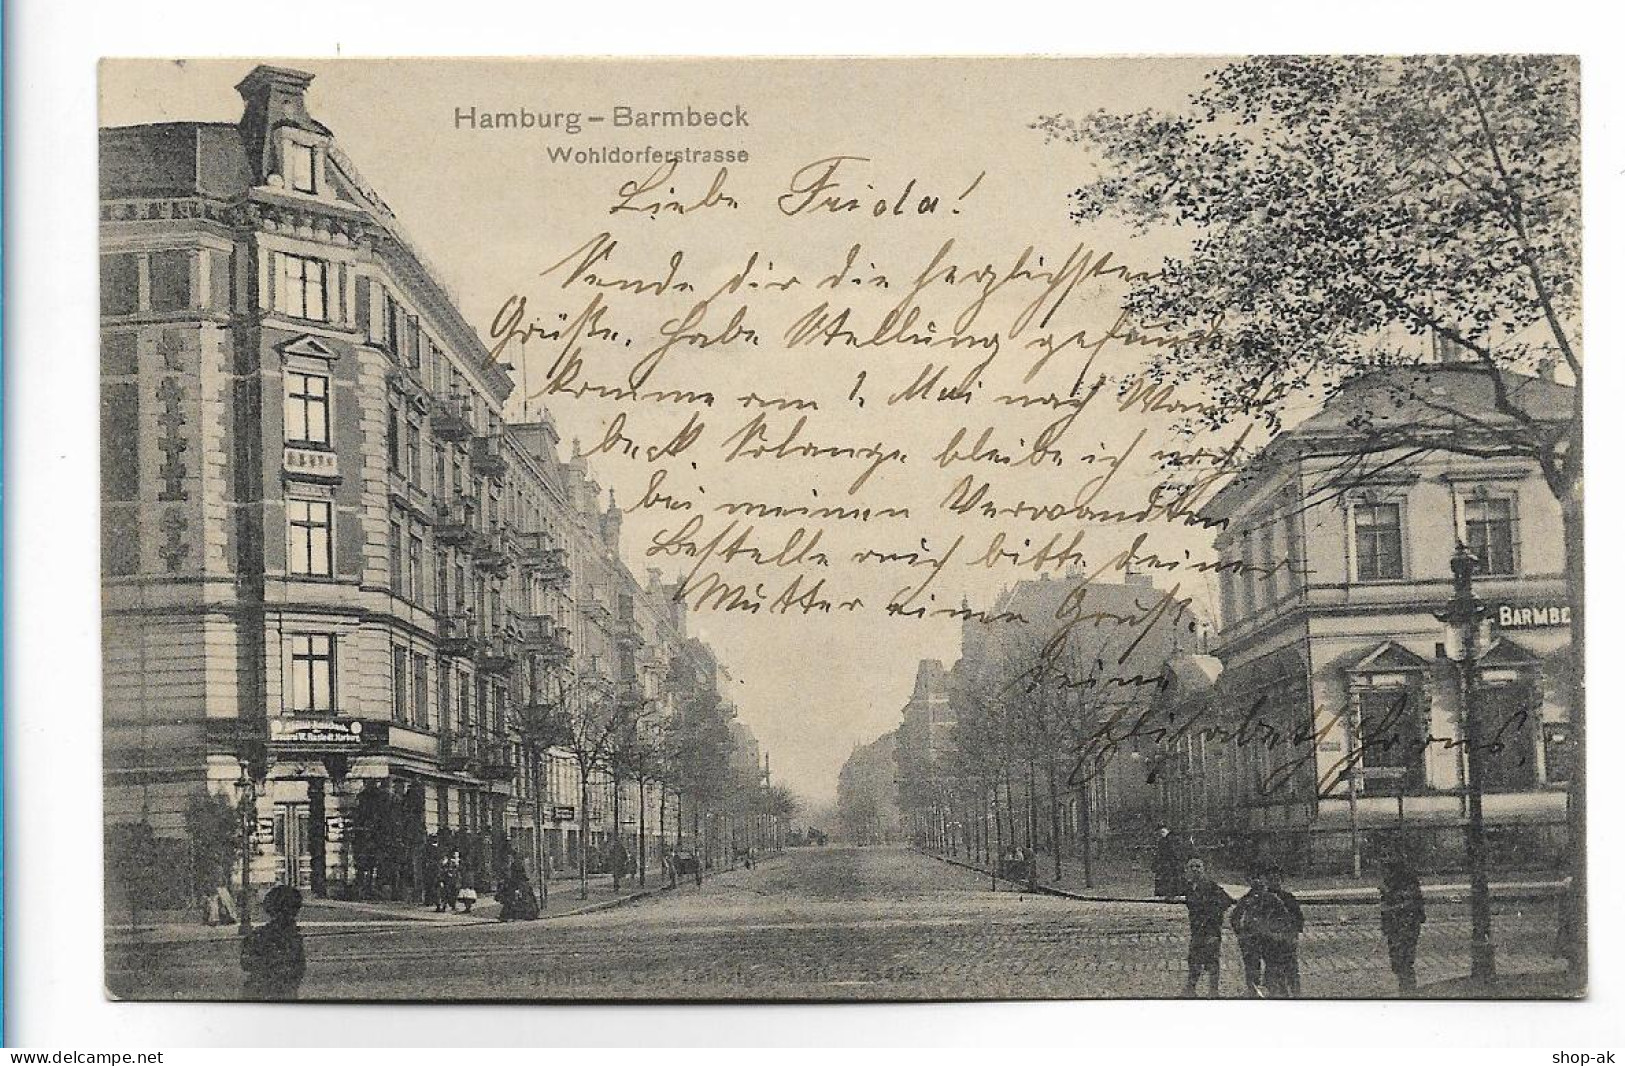 Hamburg – Barmbeck
Wohldorferstrasse
Liebe Frida!
Sende dir die herzlichsten
Grüße. Habe Stellung gefunden
komme am 1. Mai nach Wands
beck. Solange bleibe ich noch
bei meinen Verwandten
Bestelle auch bitte deiner
Mutter einen Gruß.
Deine
Elisabeth Harms.
BARMBE
delcampe.net
shop-ak